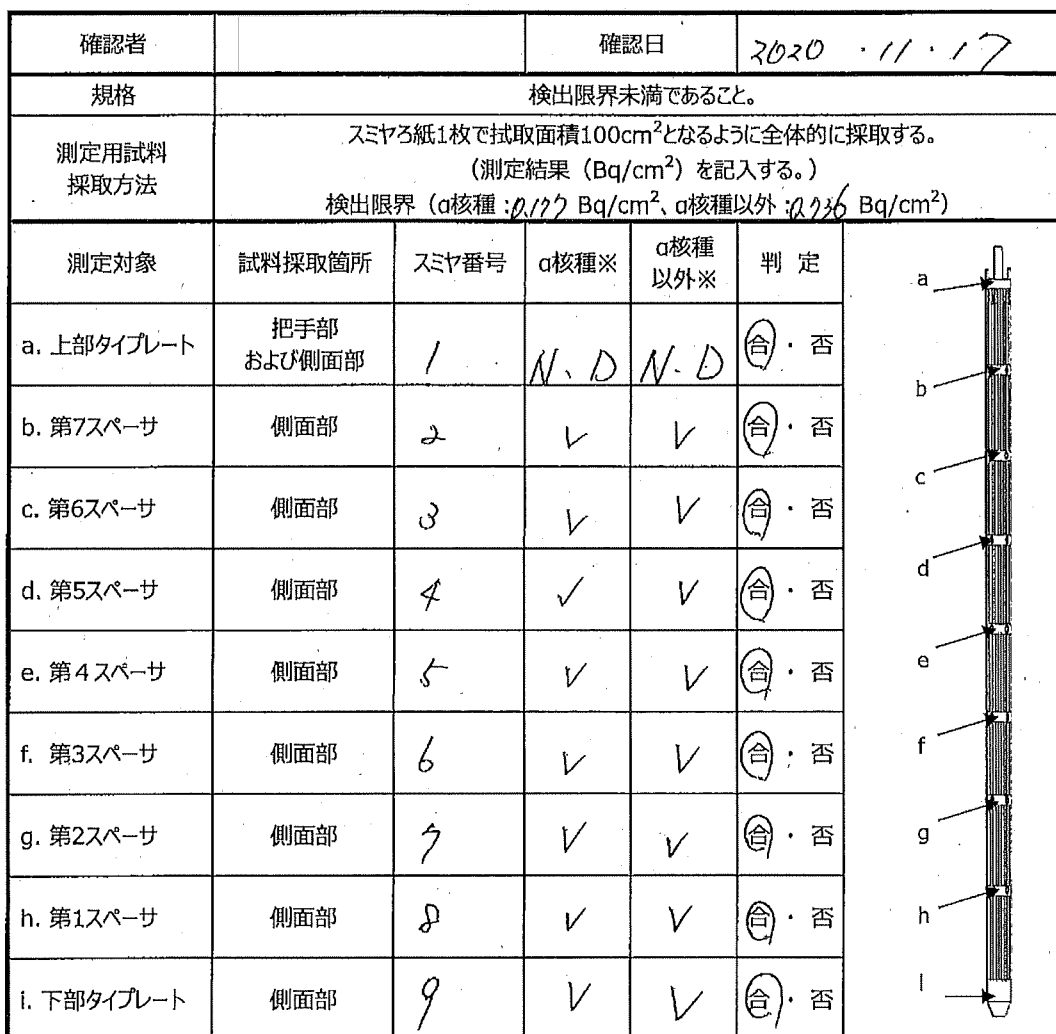 確認者 確認日 2020・11・17
規格 検出限界未満であること。
測定用試料採取方法 スミヤろ紙1枚で拭取面積100cm²となるように全体的に採取する。
(測定結果(Bq/cm²)を記入する。)
検出限界(α核種:0.177 Bq/cm²、α核種以外:0.736 Bq/cm²)
測定対象 試料採取箇所 スミヤ番号 α核種※ α核種以外※ 判 定
a. 上部タイプレート 把手部および側面部 1 N.D N.D 合・否
b. 第7スペーサ 側面部 2 ✓ ✓ 合・否
c. 第6スペーサ 側面部 3 ✓ ✓ 合・否
d. 第5スペーサ 側面部 4 ✓ ✓ 合・否
e. 第4スペーサ 側面部 5 ✓ ✓ 合・否
f. 第3スペーサ 側面部 6 ✓ ✓ 合・否
g. 第2スペーサ 側面部 7 ✓ ✓ 合・否
h. 第1スペーサ 側面部 8 ✓ ✓ 合・否
i. 下部タイプレート 側面部 9 ✓ ✓ 合・否
a
b
c
d
e
f
g
h
I